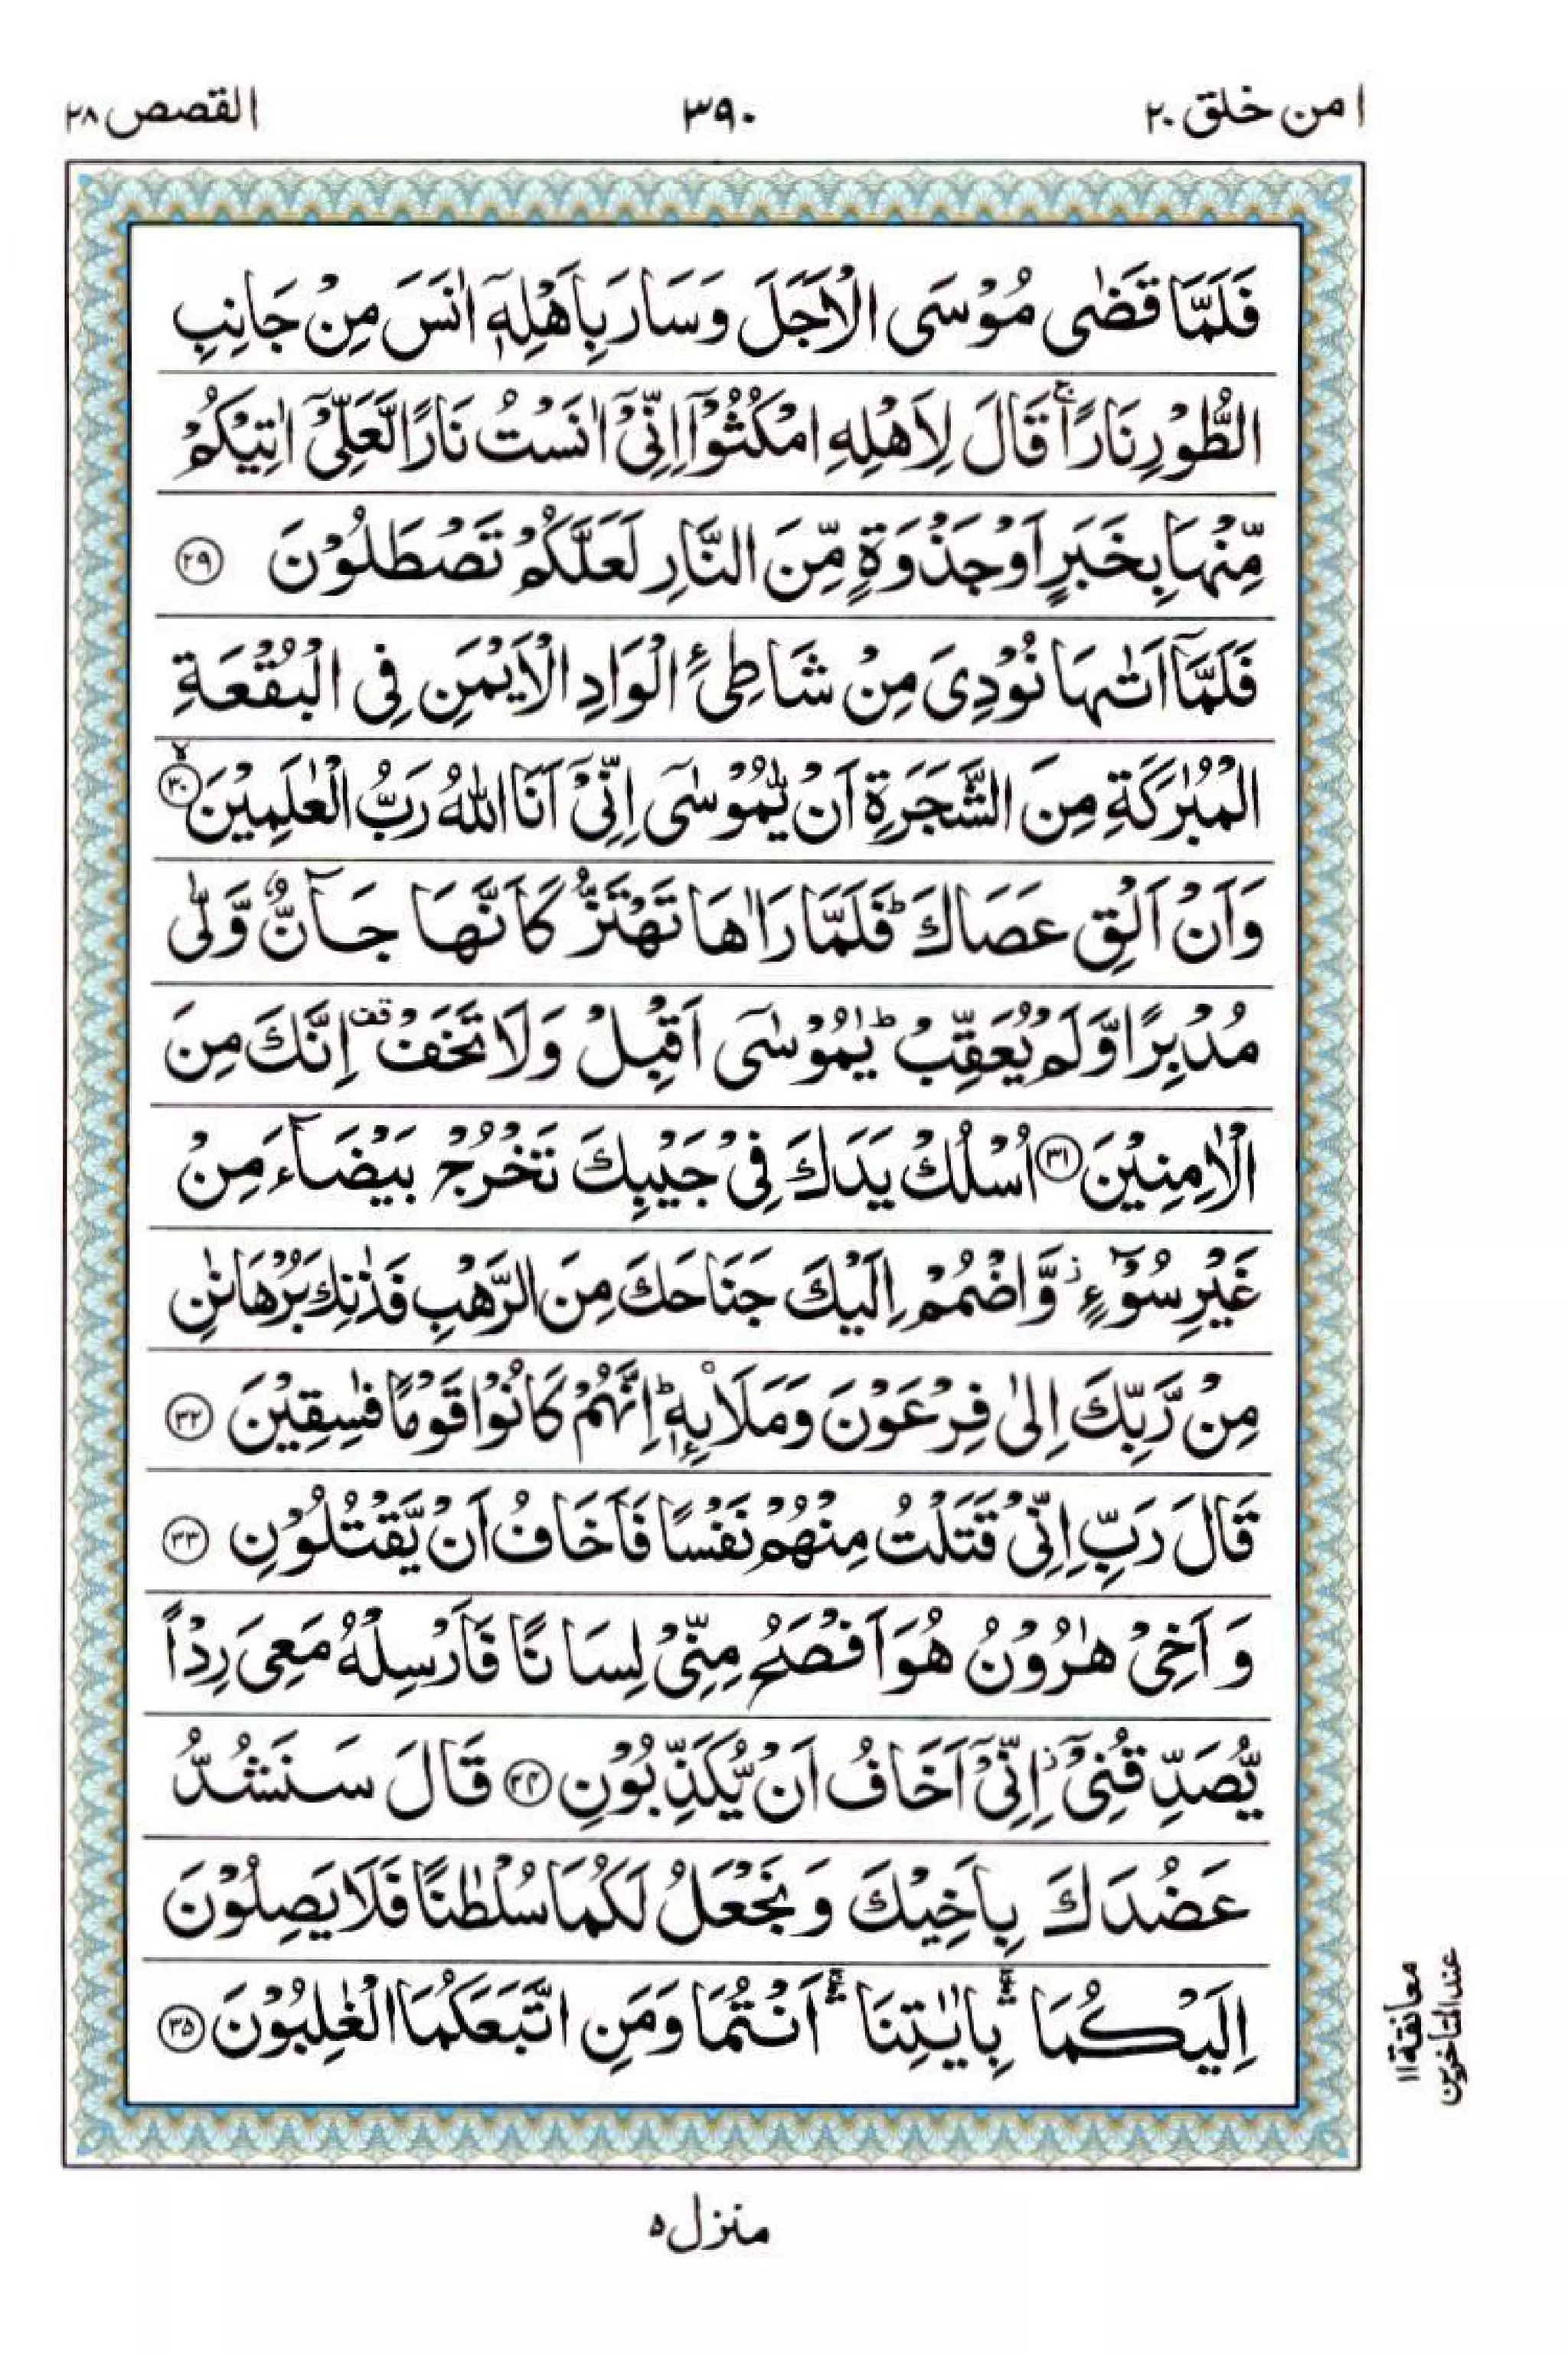 امن خلق ٢٠
٣٩٠
القصص ٢٨
فَلَمَّا قَضٰى مُوْسَى الْاَجَلَ وَسَارَ بِاَهْلِهٖۤ اٰنَسَ مِنْ جَانِبِ
الطُّوْرِ نَارًا ۚ قَالَ لِاَهْلِهِ امْكُثُوْۤا اِنِّیْۤ اٰنَسْتُ نَارًا لَّعَلِّیْۤ اٰتِیْكُمْ
مِّنْهَا بِخَبَرٍ اَوْ جَذْوَةٍ مِّنَ النَّارِ لَعَلَّكُمْ تَصْطَلُوْنَ ﴿٢٩﴾
فَلَمَّاۤ اَتٰىهَا نُوْدِیَ مِنْ شَاطِئِ الْوَادِ الْاَیْمَنِ فِی الْبُقْعَةِ
الْمُبٰرَكَةِ مِنَ الشَّجَرَةِ اَنْ یّٰمُوْسٰۤى اِنِّیْۤ اَنَا اللّٰهُ رَبُّ الْعٰلَمِیْنَ ﴿٣٠﴾ ۙ
وَاَنْ اَلْقِ عَصَاكَ ؕ فَلَمَّا رَاٰهَا تَهْتَزُّ كَاَنَّهَا جَآنٌّ وَّلّٰى
مُدْبِرًا وَّلَمْ یُعَقِّبْ ؕ یٰمُوْسٰۤى اَقْبِلْ وَلَا تَخَفْ ۫ اِنَّكَ مِنَ
الْاٰمِنِیْنَ ﴿٣١﴾ اُسْلُكْ یَدَكَ فِیْ جَیْبِكَ تَخْرُجْ بَیْضَآءَ مِنْ
غَیْرِ سُوْٓءٍ ؗ وَّاضْمُمْ اِلَیْكَ جَنَاحَكَ مِنَ الرَّهْبِ فَذٰنِكَ بُرْهَانٰنِ
مِنْ رَّبِّكَ اِلٰى فِرْعَوْنَ وَمَلَا۟ىِٕهٖ ؕ اِنَّهُمْ كَانُوْا قَوْمًا فٰسِقِیْنَ ﴿٣٢﴾
قَالَ رَبِّ اِنِّیْ قَتَلْتُ مِنْهُمْ نَفْسًا فَاَخَافُ اَنْ یَّقْتُلُوْنِ ﴿٣٣﴾
وَاَخِیْ هٰرُوْنُ هُوَ اَفْصَحُ مِنِّیْ لِسَانًا فَاَرْسِلْهُ مَعِیَ رِدْاً
یُّصَدِّقُنِیْۤ ؗ اِنِّیْۤ اَخَافُ اَنْ یُّكَذِّبُوْنِ ﴿٣٤﴾ قَالَ سَنَشُدُّ
عَضُدَكَ بِاَخِیْكَ وَنَجْعَلُ لَكُمَا سُلْطٰنًا فَلَا یَصِلُوْنَ
اِلَیْكُمَا ۛۚ بِاٰیٰتِنَاۤ ۛۚ اَنْتُمَا وَمَنِ اتَّبَعَكُمَا الْغٰلِبُوْنَ ﴿٣٥﴾
معانقة ١١
عند المتاخرين
منزل ٥